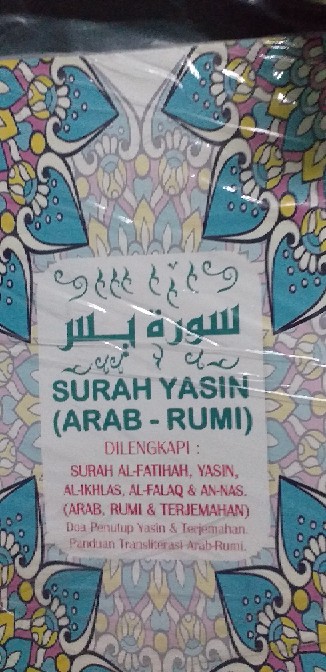 سورة يس
SURAH YASIN
(ARAB - RUMI)
DILENGKAPI :
SURAH AL-FATIHAH, YASIN,
AL-IKHLAS, AL-FALAQ & AN-NAS.
(ARAB, RUMI & TERJEMAHAN)
Doa Penutup Yasin & Terjemahan.
Panduan Transliterasi Arab-Rumi.